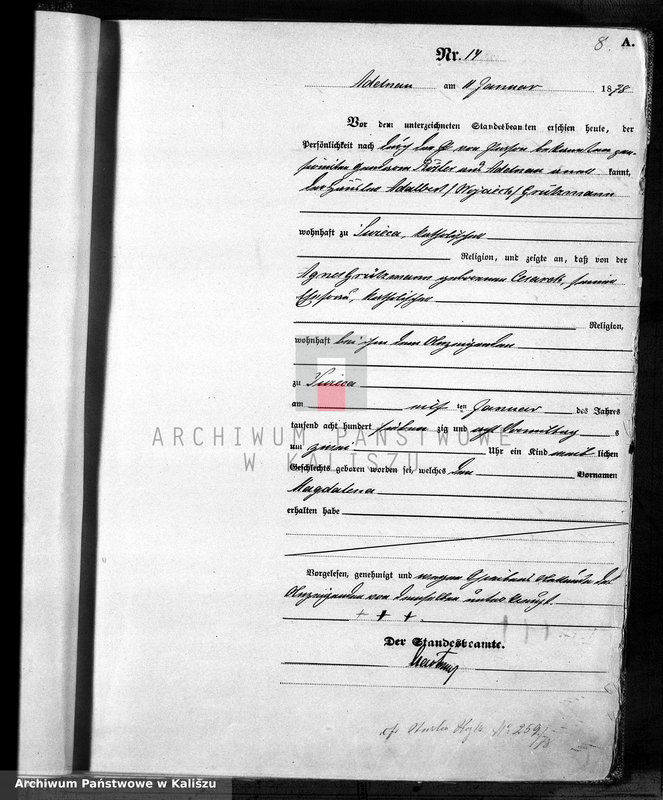 8. A.
Nr. 14
Adelnau am 11 Januar 1878
Vor dem unterzeichneten Standesbeamten erschien heute, der
Persönlichkeit nach durch den von Person bekannten
Adelnau kannt,
der Häusler Adalbert /Wojciech/ Grützmann
wohnhaft zu katholischer
Religion, und zeigte an, daß von der
Agnes Grützmann geborenen seiner
Ehefrau, katholischer
Religion,
wohnhaft bei ihm dem Anzeigenden
zu
am elf ten Januar des Jahres
tausend acht hundert sieben zig und acht Vormittag s
um zwei Uhr ein Kind weib lichen
Geschlechts geboren worden sei, welches den Vornamen
Magdalena
erhalten habe
Vorgelesen, genehmigt und wegen Schreibens des
Anzeigenden von demselben unterkreuzt.
+ + +
Der Standesbeamte.
No 259/78
ARCHIWUM PAŃSTWOWE
W KALISZU
Archiwum Państwowe w Kaliszu